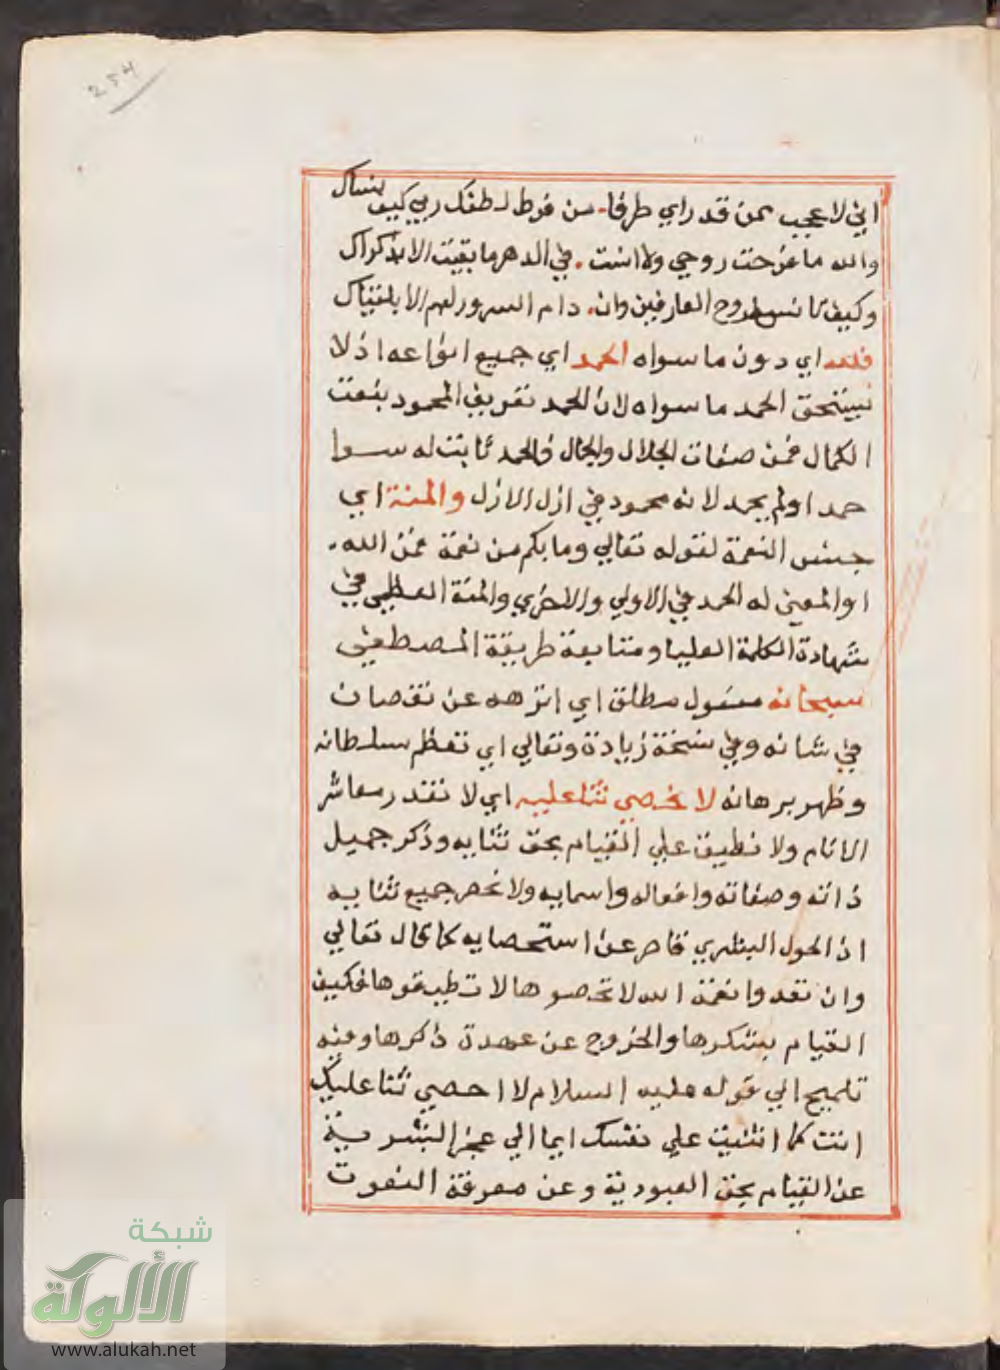 254
اني لا عجب ممن قد راي طرفا من فرط لطفك ربي كيف ينساك
والله ما فرحت روحي ولا انست في الدهر ما بقيت الا بذكراك
وكيف روح العارفين وان دام السرور لهم الا بلقياك
فلله اي دون ما سواه الحمد اي جميع انواعه اذ لا
يستحق الحمد ما سواه لان الحمد تعريف المحمود بنعت
الكمال فمن صفات الجلال والجمال فالحمد ثابت له سوا
حمد او لم يحمد لانه محمود في ازل الازل والمنة اي
جنس النعمة لقوله تعالي وما بكم من نعمة فمن الله
او المعني له الحمد في الاولي والاخري والمنة العظمي في
شهادة الكلمة العليا ومتابعة طريقة المصطفي
سبحانه مفعول مطلق اي انزهه عن نقصان
في شانه وفي نسخة زيادة وتعالي اي تعظم سلطانه
وظهر برهانه لا نحصي ثنا عليه اي لا نقدر معاشر
الانام ولا نطيق علي القيام بحق ثنايه وذكر جميل
ذاته وصفاته وافعاله واسمايه ولا نحصر جميع ثنايه
اذ الحول البشري قاصر عن استحصايه كما قال تعالي
وان تعدوا نعمة الله لا تحصوها لا تطيقوها فكيف
القيام بشكرها والخروج عن عهدة ذكرها ومنه
تلميح الي قوله عليه السلام لا احصي ثنا عليك
انت كما اثنيت علي نفسك ايما الي عجز البشرية
عن القيام بحق العبودية وعن معرفة النعوت
شبكة
الألوكة
www.alukah.net